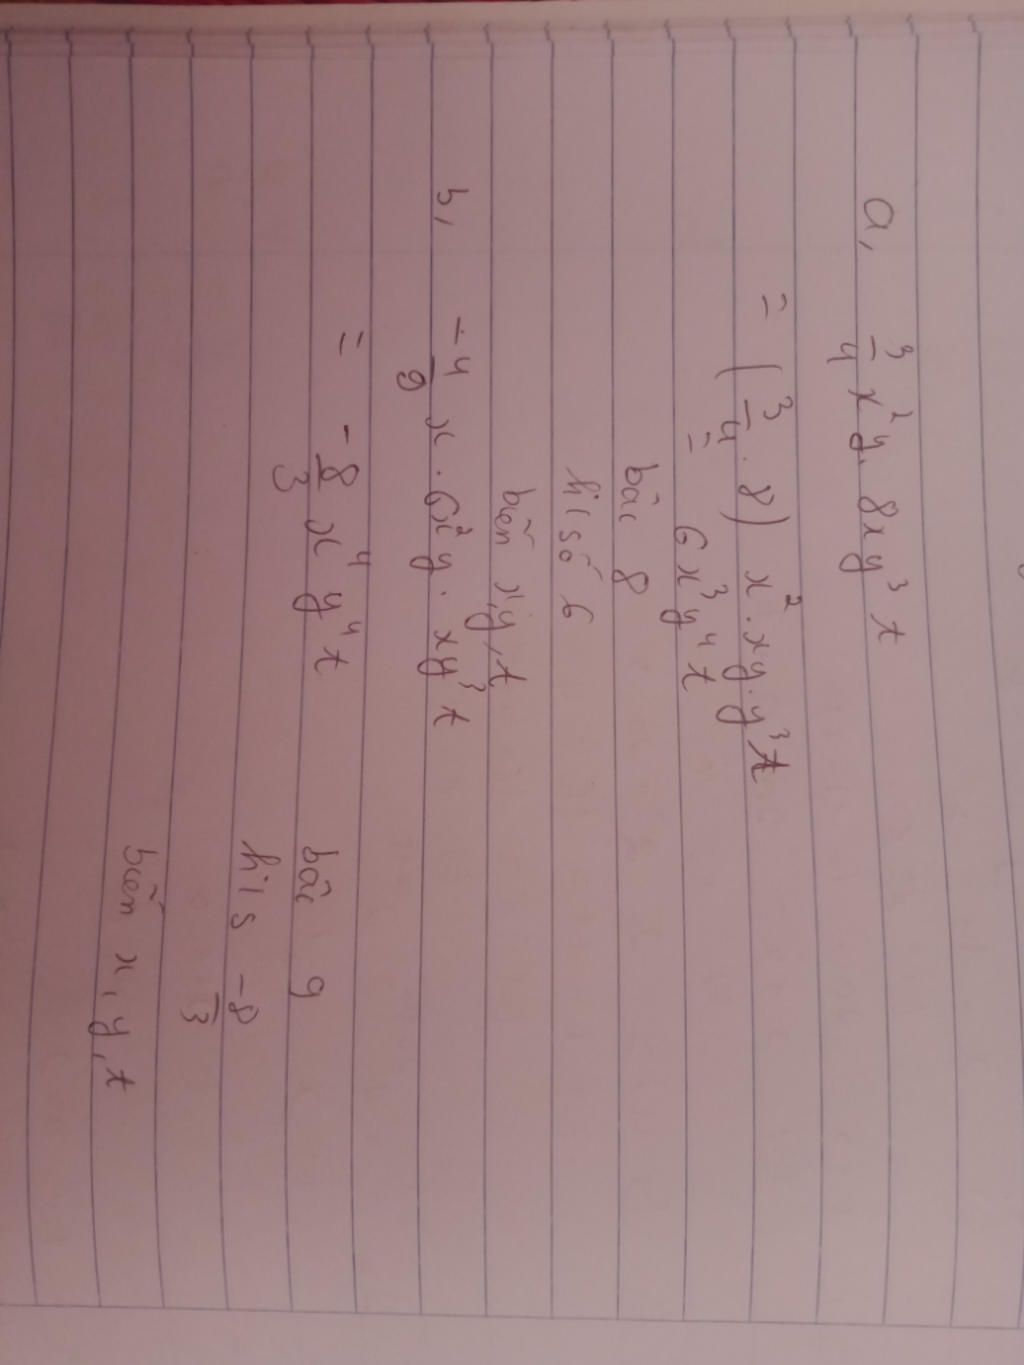 a, 3/4 x²y. 8xy³t
= (3/4 . 8) x².xy.y³t
= 6x³y⁴t
bâc 8
h/số 6
biến x,y,t
b, -4/9 x . 6x²y . xy³t
= -8/3 x⁴y⁴t
bâc 9
h/s -8/3
biến x, y, t